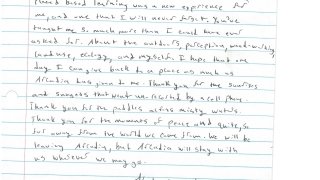 placed based learning was a new experience for
me, and one that I will never forget. You've
taught me so much more than I could have ever
asked for. About the outdoors, perception, woodworking,
land use, ecology, and myself. I hope that one
day I can give back to a place as much as
Arcadia has given to me. Thank you for the sunrises
and sunsets that went unrecorded by a cell phone.
Thank you for the paddles across misty waters.
Thank you for the moments of peace and quite, so
far away from the world we come from. We will be
leaving Arcadia, but Arcadia will stay with
us wherever we may go.